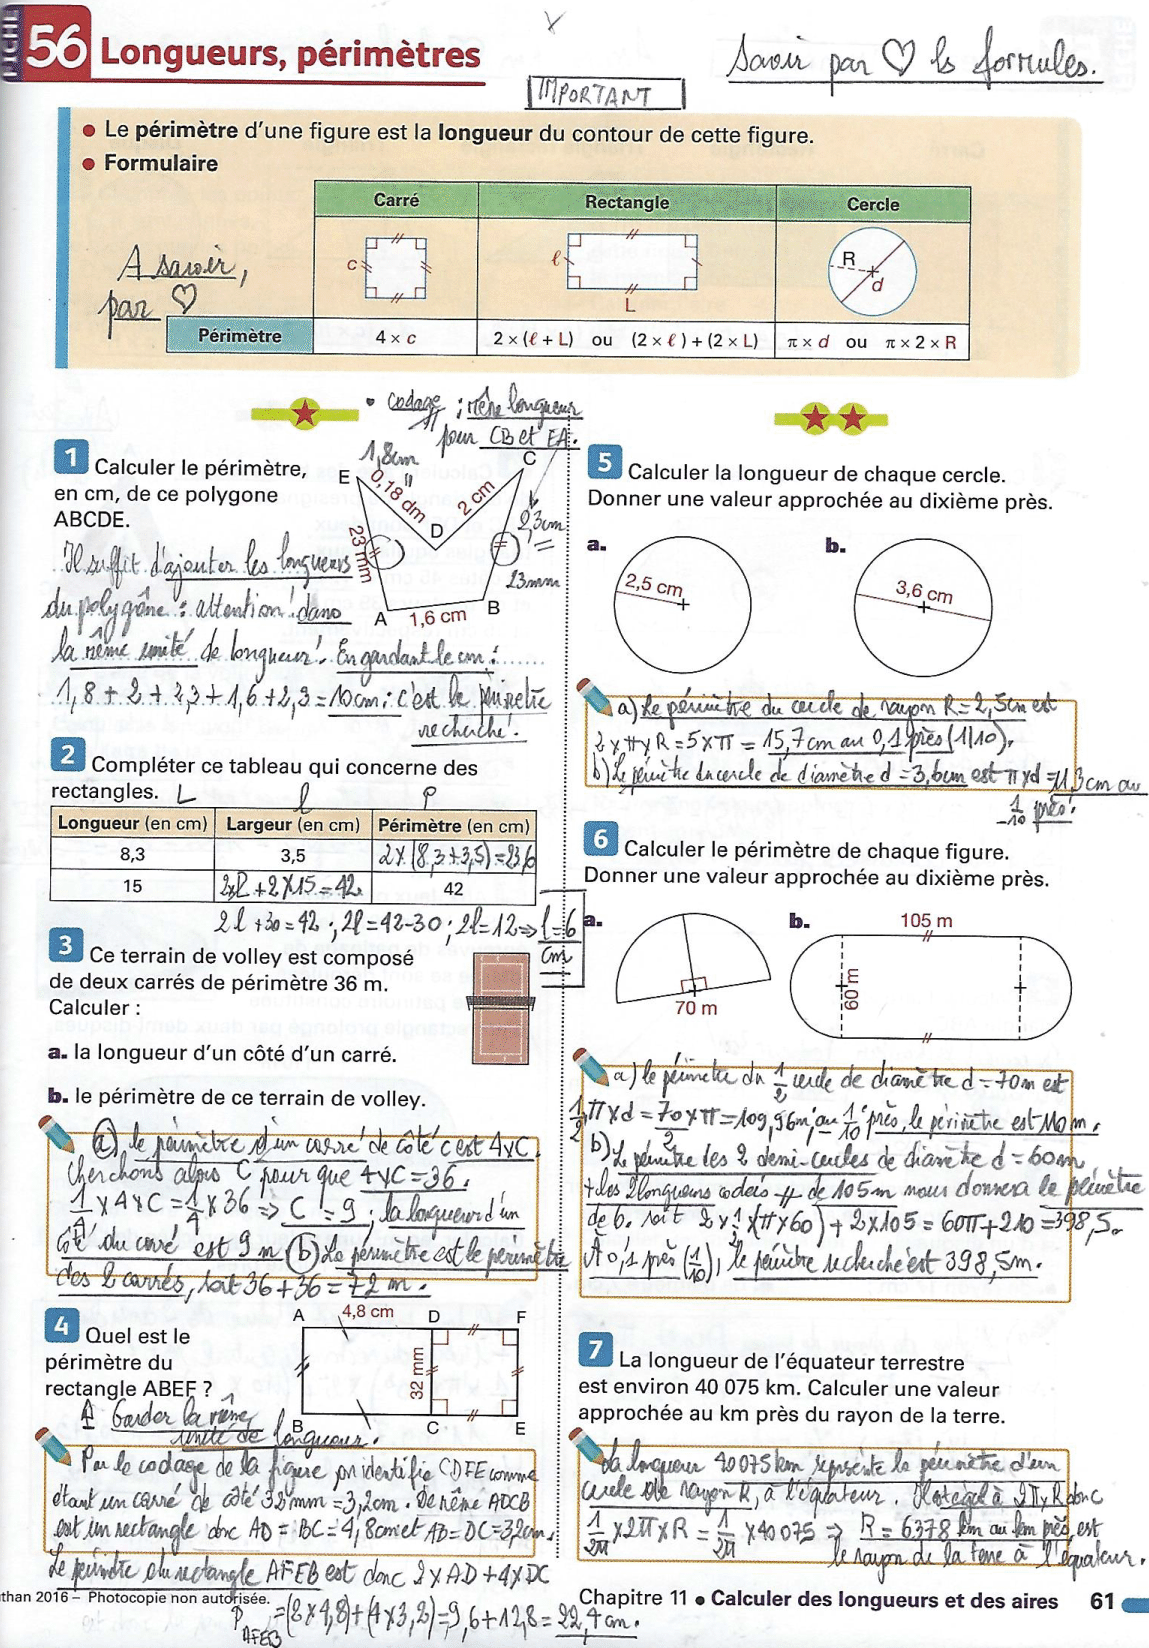 FICHE 56 Longueurs, périmètres
Savoir par ♡ ls formules.
IMPORTANT
• Le périmètre d'une figure est la longueur du contour de cette figure.
• Formulaire
Carré Rectangle Cercle
c ℓ L R d
A savoir,
par ♡
Périmètre 4 × c 2 × (ℓ + L) ou (2 × ℓ) + (2 × L) π × d ou π × 2 × R
• codage : même longueur
pour CB et EA.
1 Calculer le périmètre,
en cm, de ce polygone
ABCDE.
1,8cm
E 0,18 dm 2 cm C
D
23 mm 2,3cm
23mm
A 1,6 cm B
Il suffit d'ajouter les longueurs
du polygône : attention ! dans
la même unité de longueur. En gardant le cm :
1,8 + 2 + 2,3 + 1,6 + 2,3 = 10cm : c'est le périmètre
recherché.
2 Compléter ce tableau qui concerne des
rectangles. L l P
Longueur (en cm) Largeur (en cm) Périmètre (en cm)
8,3 3,5 2×(8,3+3,5)=23,6
15 2×l + 2×15 = 42 42
2l + 30 = 42 ; 2l = 42-30 ; 2l = 12 ⇒ l = 6
cm
3 Ce terrain de volley est composé
de deux carrés de périmètre 36 m.
Calculer :
a. la longueur d'un côté d'un carré.
b. le périmètre de ce terrain de volley.
a) le périmètre d'un carré de côté c est 4×C.
Cherchons alors C pour que 4×C = 36.
1/4 × 4 × C = 1/4 × 36 ⇒ C = 9 ; la longueur d'un
côté du carré est 9 m b) Le périmètre est le périmètre
des 2 carrés, soit 36 + 36 = 72 m.
4 Quel est le
périmètre du
rectangle ABEF ?
A 4,8 cm D F
32 mm
B C E
Garder la même
unité de longueur.
Par le codage de la figure on identifie CDFE comme
étant un carré de côté 32 mm = 3,2cm. De même ADCB
est un rectangle donc AD = BC = 4,8cm et AB = DC = 3,2cm.
Le périmètre du rectangle AFEB est donc 2 × AD + 4 × DC
P AFEB = (2 × 4,8) + (4 × 3,2) = 9,6 + 12,8 = 22,4 cm.
5 Calculer la longueur de chaque cercle.
Donner une valeur approchée au dixième près.
a. 2,5 cm b. 3,6 cm
a) Le périmètre du cercle de rayon R = 2,5cm est
2 × π × R = 5 × π = 15,7 cm au 0,1 près (1/10).
b) Le périmètre du cercle de diamètre d = 3,6cm est π × d = 11,3 cm au
1/10 près.
6 Calculer le périmètre de chaque figure.
Donner une valeur approchée au dixième près.
a. 70 m b. 105 m 60 m
a) le périmètre du 1/2 cercle de diamètre d = 70 m est
1/2 π × d = 70/2 × π = 109,96m ; au 1/10 près, le périmètre est 110 m.
b) Le périmètre des 2 demi-cercles de diamètre d = 60m
+ des 2 longueurs codées // de 105 m nous donnera le périmètre
de b. soit 2 × 1/2 × (π × 60) + 2 × 105 = 60π + 210 = 398,5
À 0,1 près (1/10), le périmètre recherché est 398,5m.
7 La longueur de l'équateur terrestre
est environ 40 075 km. Calculer une valeur
approchée au km près du rayon de la terre.
La longueur 40 075 km représente le périmètre d'un
cercle de rayon R, à l'équateur. Il est égal à 2π × R donc
1/2π × 2π × R = 1/2π × 40 075 ⇒ R = 6378 km au km près, est
le rayon de la terre à l'équateur.
than 2016 – Photocopie non autorisée.
Chapitre 11 • Calculer des longueurs et des aires 61